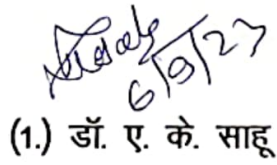 6/9/23
(1.) डॉ. ए. के. साहू